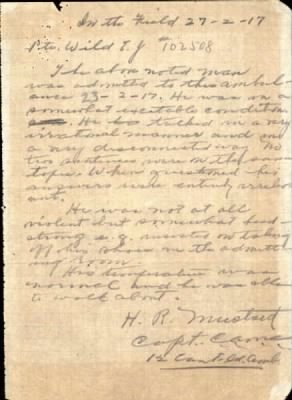 In the Field 27-2-17
Pte. Wild E.J. #102508
The above noted man
was admitted to this ambul-
ance 23-2-17. He was in a
somewhat excitable condition
He talked in a very
irrational manner and in
a very disconnected way. No
two sentences were on the same
topic. When questioned his
answers were entirely irrelev-
ant.
He was not at all
violent but somewhat head-
strong e.g. insisted on taking
off his in the admitt-
ing room
His temperature was
normal and he was able
to walk about.
H. R. Mustard
Capt. C.A.M.C.
12 Can. Fd. Amb.